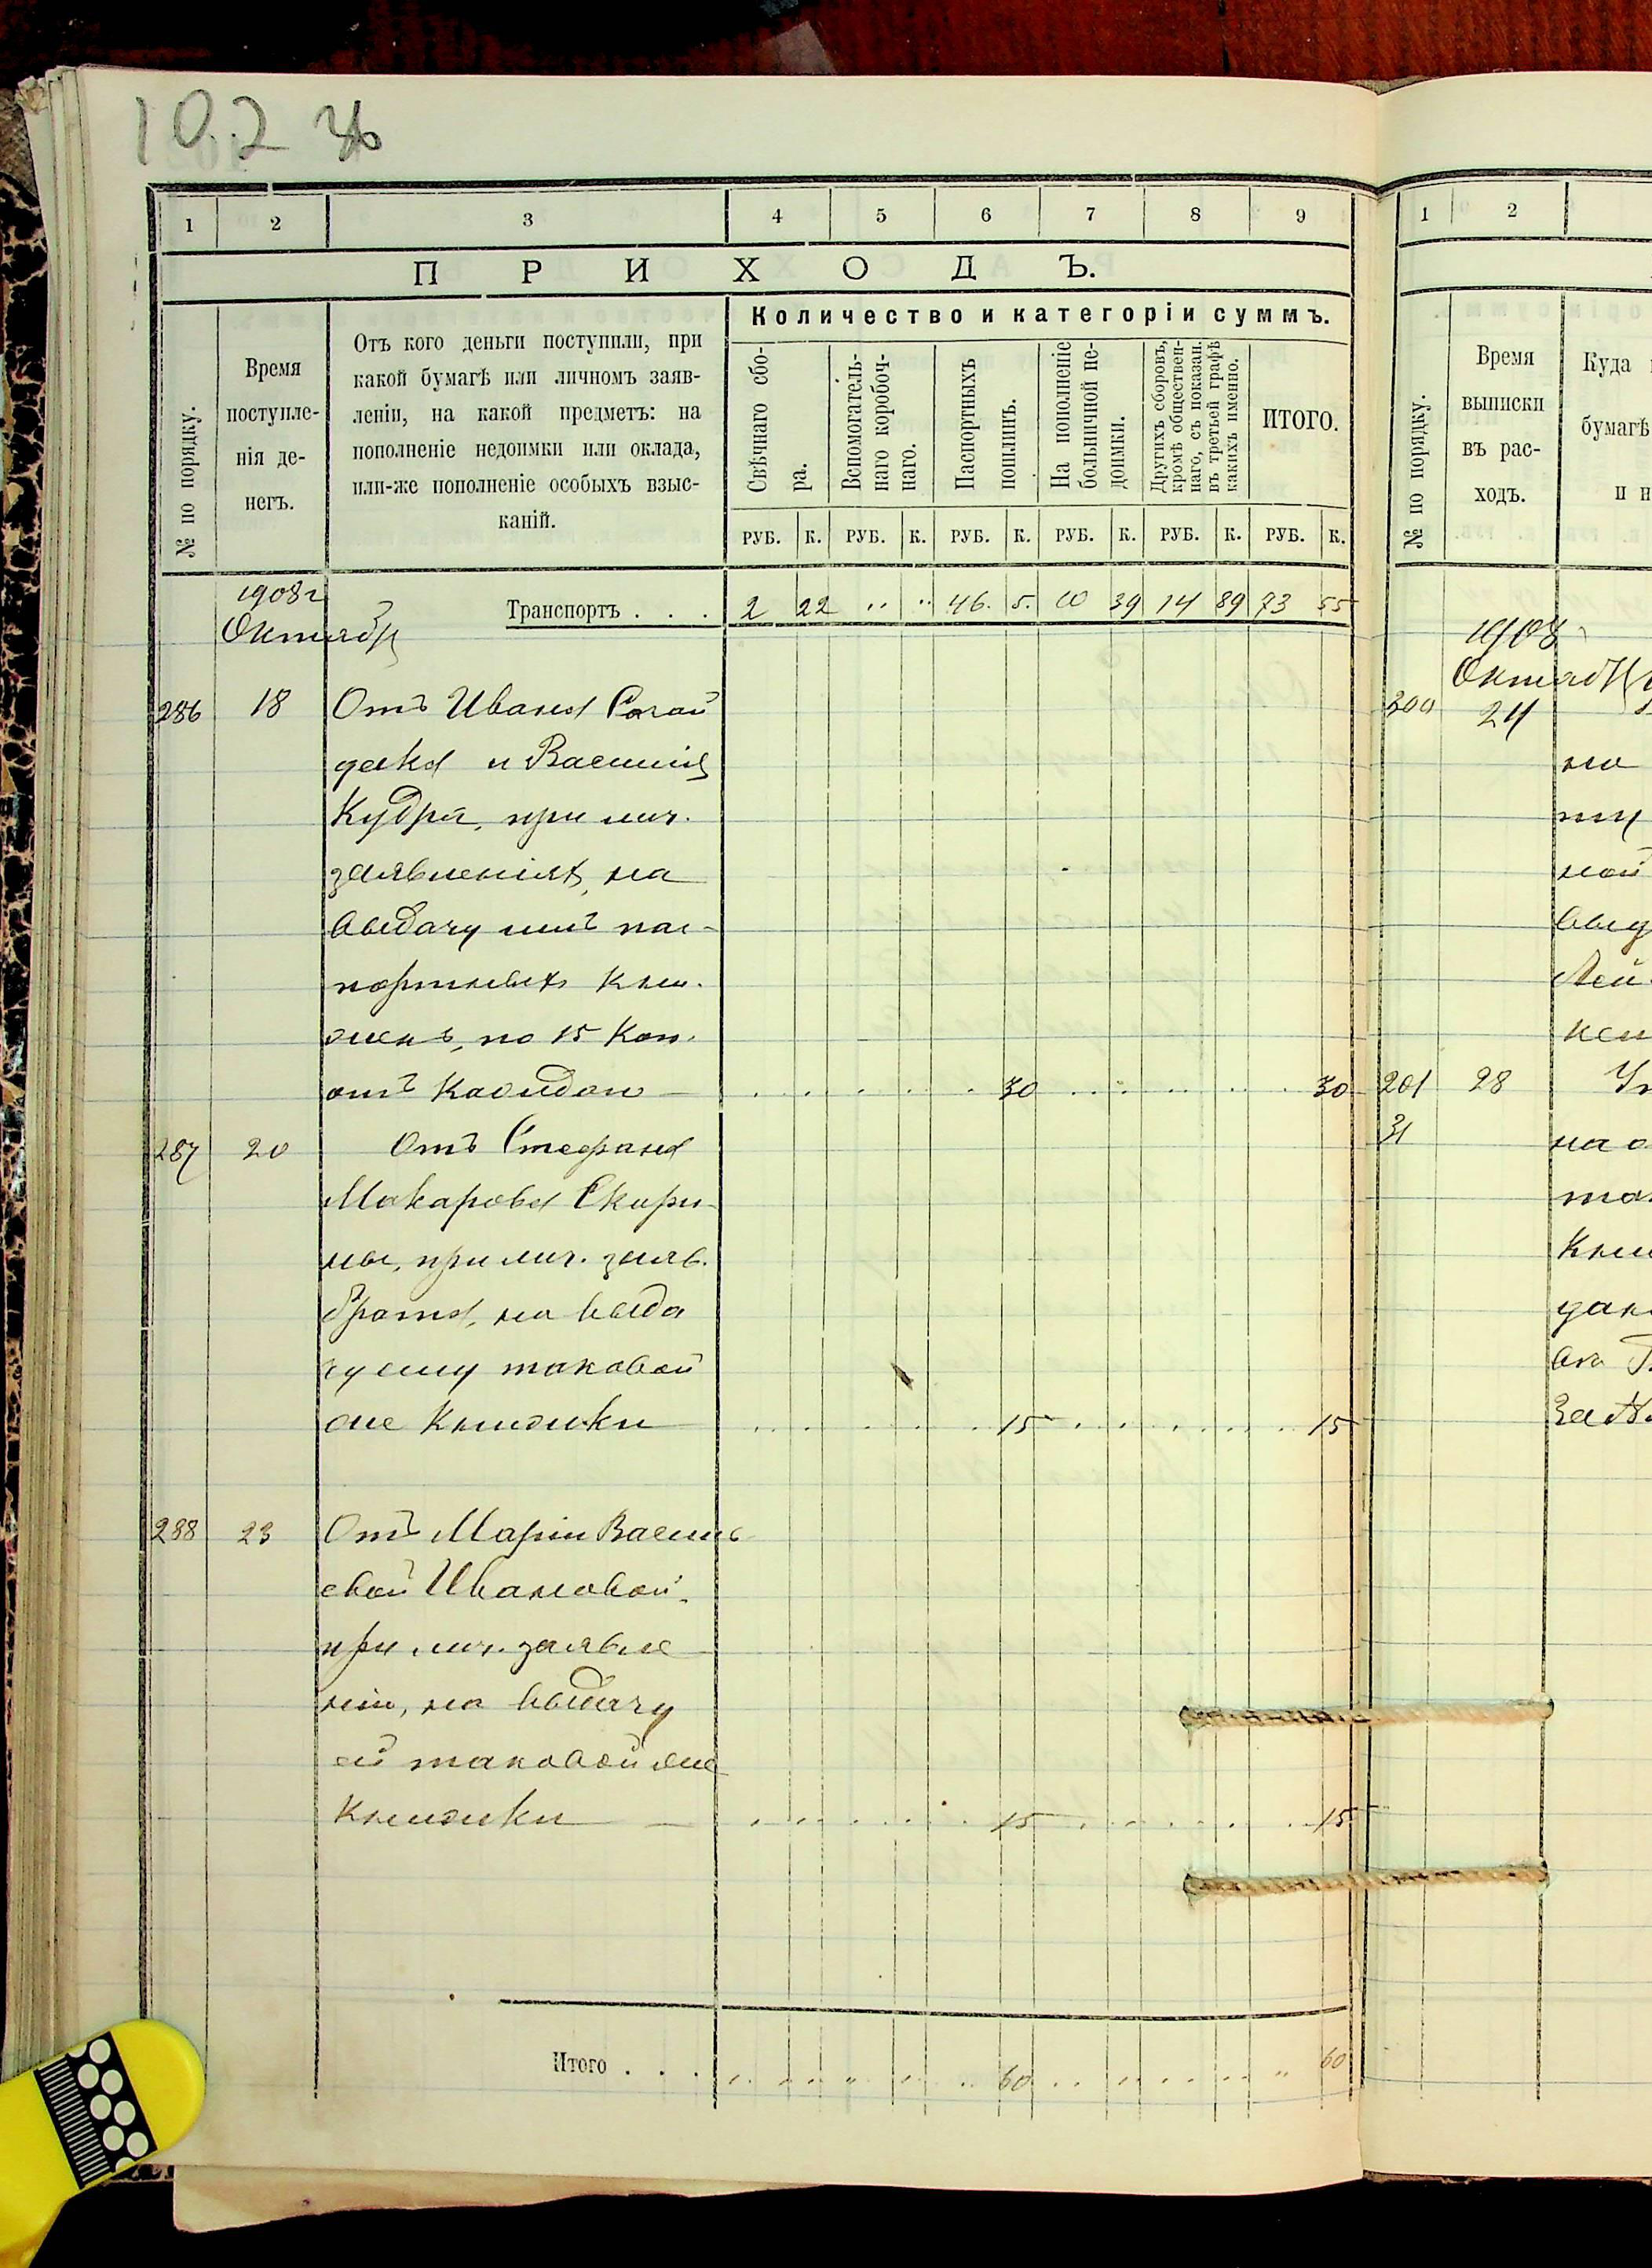 102 зв
1 2 3 4 5 6 7 8 9
ПРИХОДЪ.
№ по порядку.
Время
поступле-
нія де-
негъ.
Отъ кого деньги поступили, при
какой бумагѣ или личномъ заяв-
леніи, на какой предметъ: на
пополненіе недоимки или оклада,
или-же пополненіе особыхъ взыс-
каній.
Количество и категоріи суммъ.
Свѣчнаго сбо-
ра.
Вспомогатель-
наго коробоч-
наго.
Паспортныхъ
пошлинъ.
На пополненіе
больничной не-
доимки.
Другихъ сборовъ,
кромѣ обществен-
наго, съ показан.
въ третьей графѣ
какихъ именно.
ИТОГО.
РУБ. К. РУБ. К. РУБ. К. РУБ. К. РУБ. К. РУБ. К.
1908 г
Октябр
Транспортъ . . . 2 22 " " 46. 5. 10 39 14 89 73 55
286 18 Отъ Ивана
и Василія
Кудря, при лич.
заявленіях, на
выдачу имъ пас-
портныхъ кни-
жекъ, по 15 коп.
отъ каждого 30 30
287 20 Отъ Стефана
Макарова Скори-
ны, при лич. заяв.
брата, на выда
чу ему таковой
же книжки 15 15
288 23 Отъ Маріи Василь
евой Ивановой,
при лич. заявле
ніи, на выдачу
ей таковой же
книжки 15 15
Итого . . . 60 60
1 2
№ по порядку.
Время
выписки
въ рас-
ходъ.
Куда
бумагѣ
и н
1908
Октяб
200 24
на
ной
201 28
31
на о